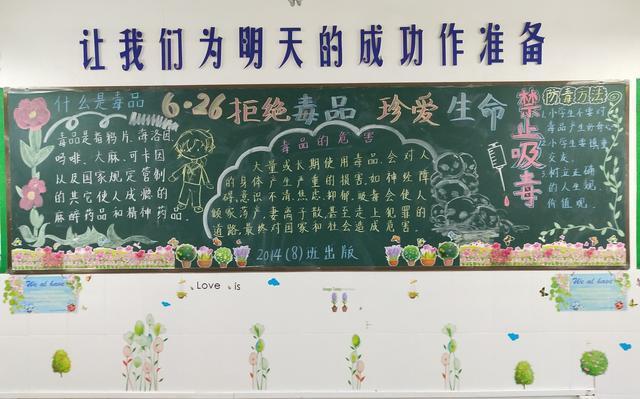 让我们为明天的成功作准备
什么是毒品
毒品是指鸦片、海洛因
吗啡、大麻、可卡因
以及国家规定管制
的其它使人成瘾的
麻醉药品和精神药品。
6·26 拒绝毒品 珍爱生命
毒品的危害
大量或长期使用毒品,会对人
的身体产生严重的损害,如神经障
碍,意识不清,焦虑抑郁,吸毒会使人
倾家荡产,妻离子散,甚至走上犯罪
道路,最终对国家和社会造成危害。
2014(8)班出版
禁止吸毒
防毒方法
1.小学生不要对
毒品产生好奇心
2.小学生要慎重
交友。
3.树立正确
的人生观
价值观。
We al have
Love is
We al have